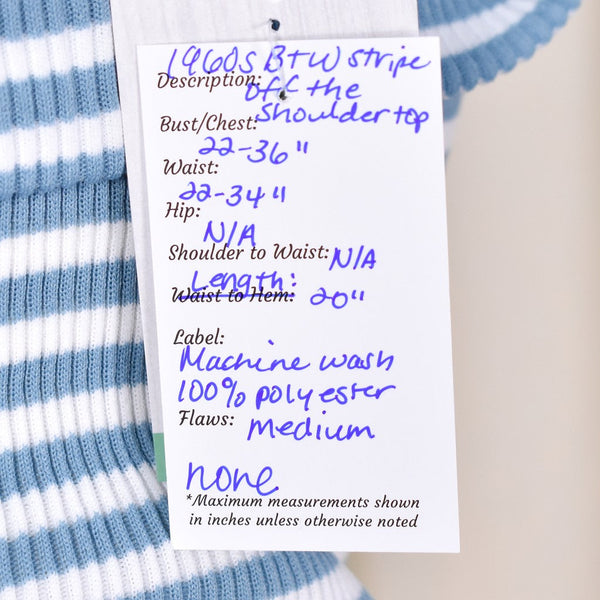 1960s B+W stripe
Description: off the
shoulder top
Bust/Chest:
22-36"
Waist:
22-34"
Hip:
N/A
Shoulder to Waist: N/A
Length:
Waist to Hem: 20"
Label:
Machine wash
100% polyester
Flaws: Medium
none
*Maximum measurements shown
in inches unless otherwise noted